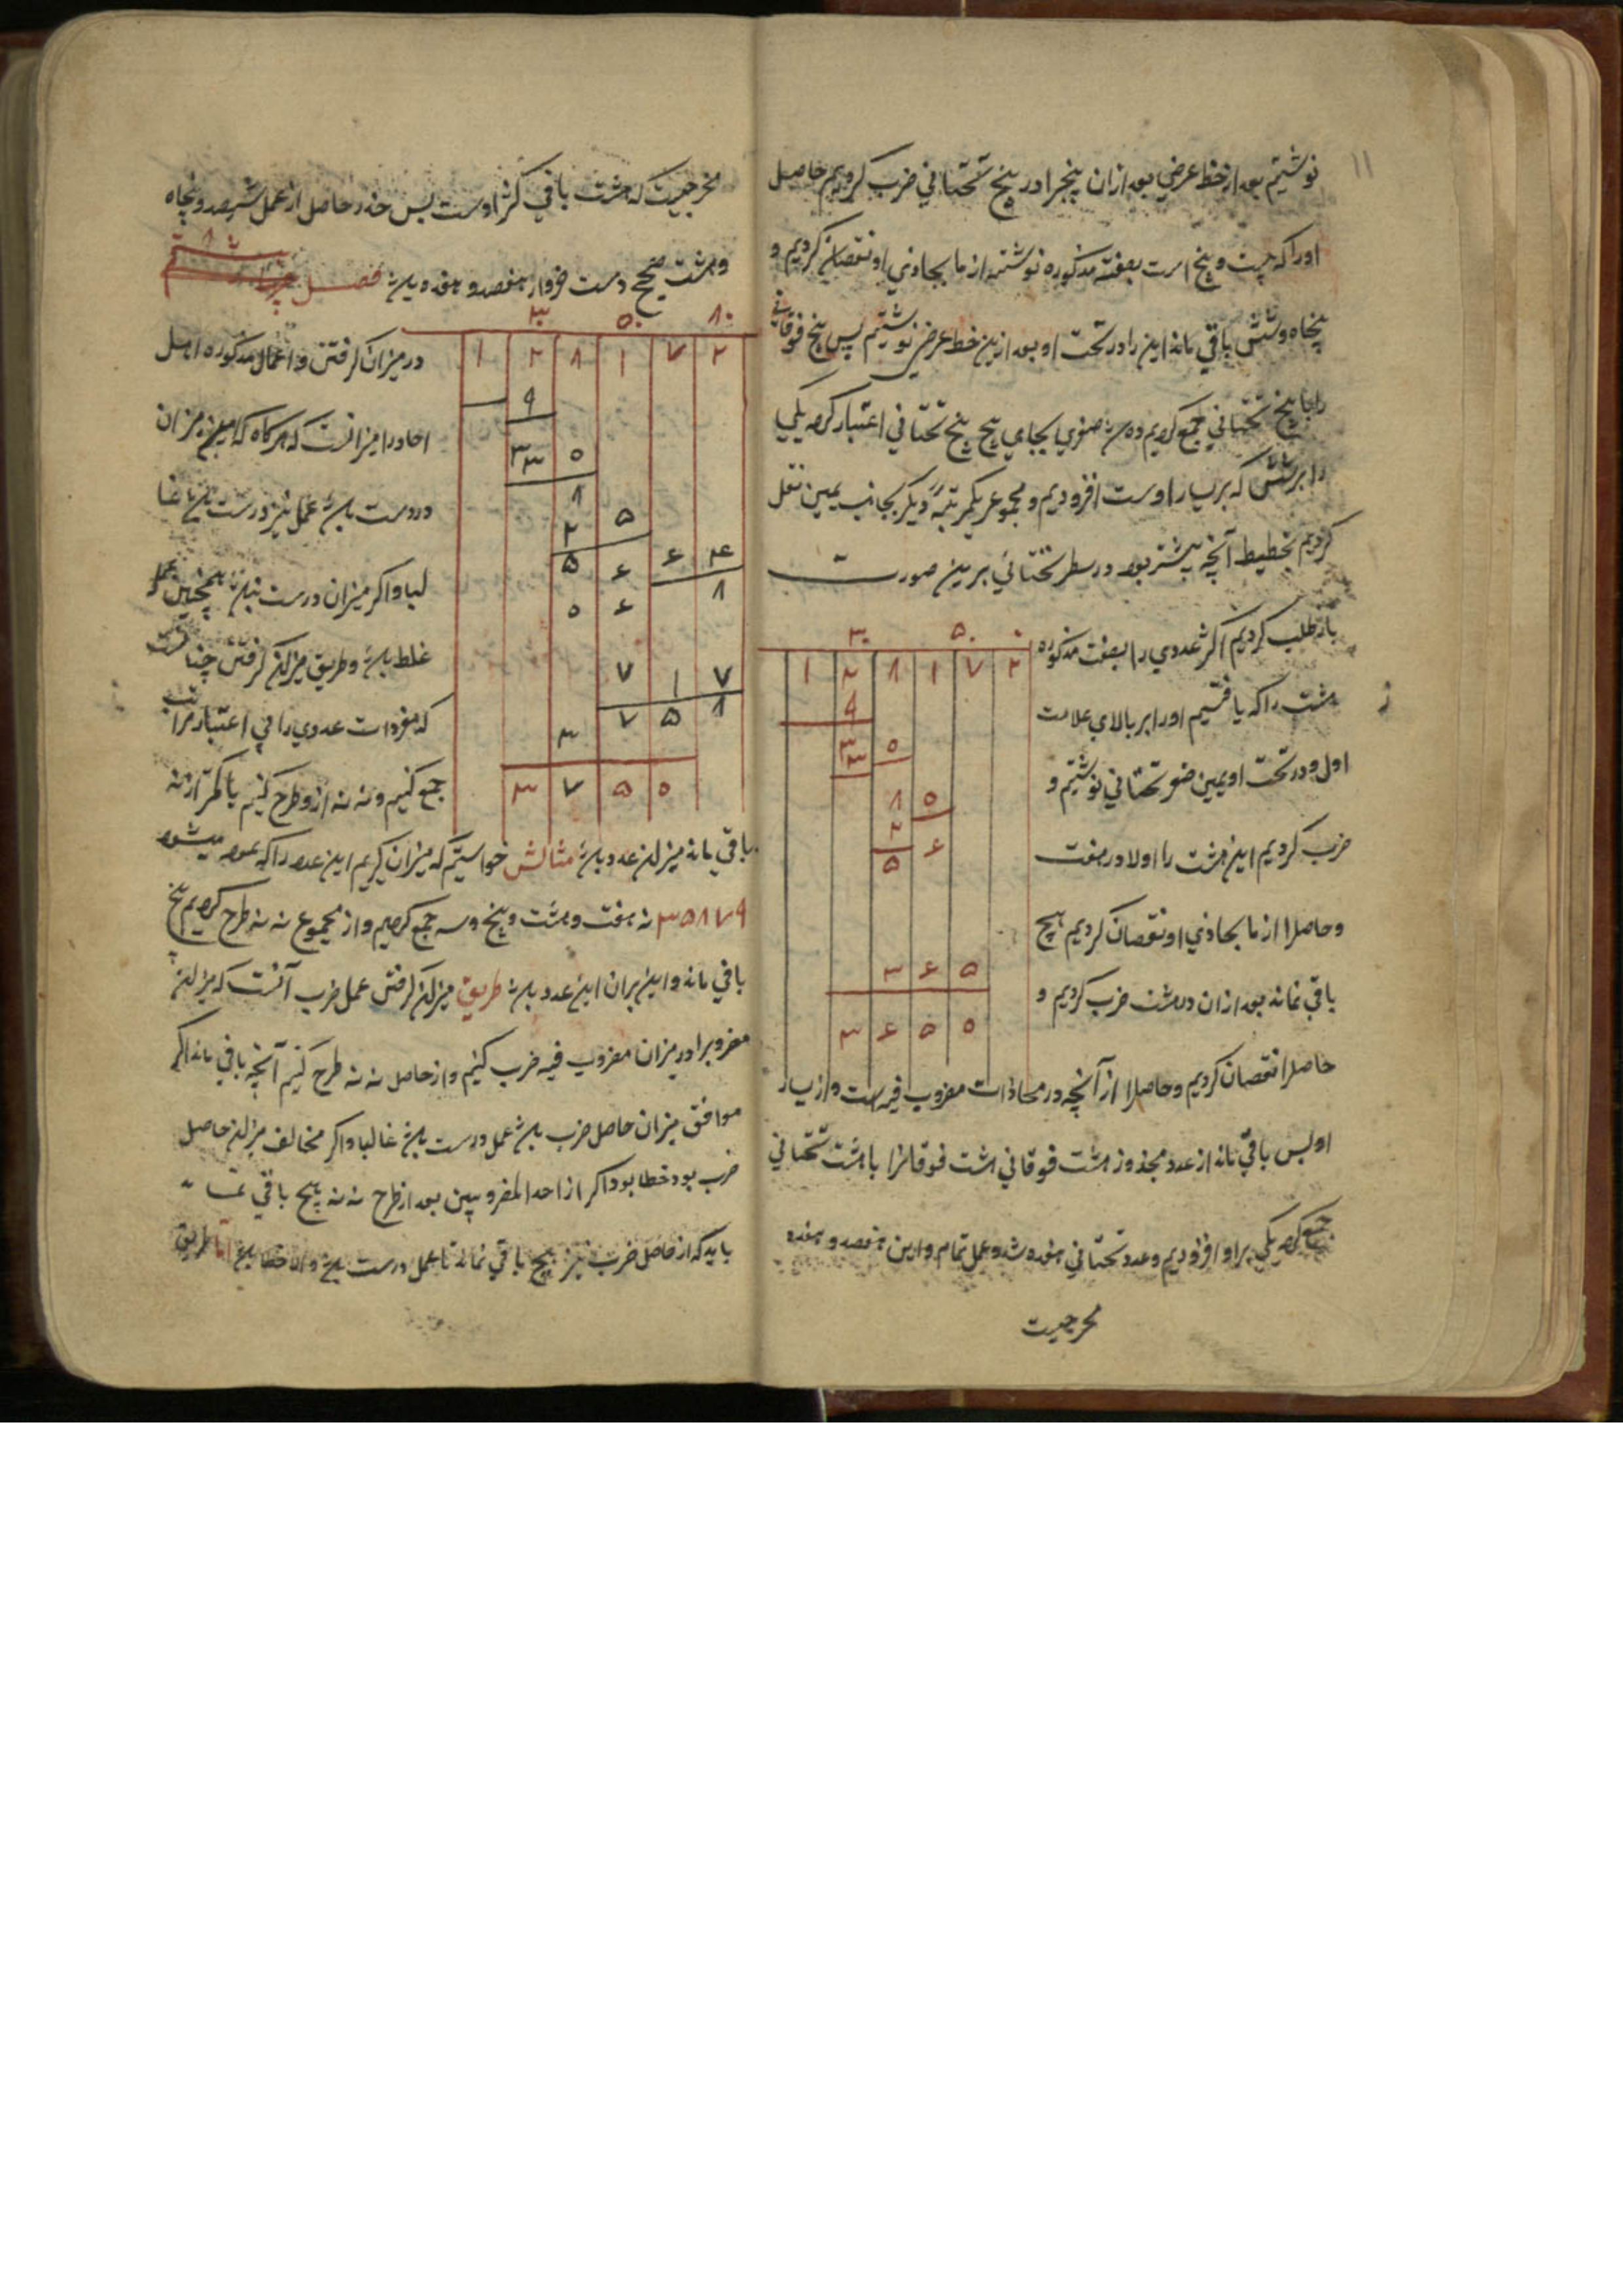 ۱۱
نوشتیم بعد از خط عرضی بعد از ان پنج را در پنج تحتانی ضرب کردیم حاصل
اورا که بیست و پنج است بصفت مذکوره نوشته از ما یحاذی او نقصان کردیم و
پنجاه و شش باقی ماند این را در تحت او بعد ازین خط عرضی نوشتیم پس پنج فوقانی
را با پنج تحتانی جمع کردیم ده شد صفری بجای پنج تحتانی اعتبار کرده یکی
را بر شش که بر یسار اوست افزودیم و مجموع بیکمرتبه دیگر بجانب یمین نقل
کردیم بتخطیط آنچه بیشتر بود در سطر تحتانی برین صورت
باز طلب کردیم اکثر عددی را بصفت مذکوره
هشت را که یافتیم اورا بر بالای علامت
اول و در تحت او بیمین صفر تحتانی نوشتیم و
ضرب کردیم این هشت را اولا در هفت
و حاصل را از ما یحاذی او نقصان کردیم هیچ
باقی نماند بعد از ان در هشت ضرب کردیم و
۳۰ ۵۰ ۰
۱ ۲ ۸ ۱ ۷ ۲
۹
۳ ۵
۳
۸ ۵
۲ ۶
۵
۳ ۶ ۵
۳ ۶ ۵ ۵
حاصل را نقصان کردیم و حاصل را از آنچه در محاذات مضروب فیه است و از یسار
او پس باقی ماند از عدد مجذور هشت فوقانی هشت فوقانرا با هشت تحتانی
جمع کرده یکی بر او افزودیم و عدد تحتانی هفده شد و عمل تمام و این هفصد و هفده
مخرجیست
مخرجیست که هشت باقی کثر اوست پس جذر حاصل از عمل سیصد و پنجاه
و هشت صحیح و هشت جزو از هفصد و هفده باشد فصل
در میزان گرفتن و اعمال مذکوره اهل
احاد را میزانست که هرگاه که میزان
و درست باشد عمل نیز درست باشد غا
لبا و اگر میزان درست نباشد همچنین عمل
غلط باشد و طریق میزان گرفتن چنانست
که مفردات عددی را بی اعتبار مراتب
جمع کنیم و نه نه ازو طرح کنیم یا کمتر از نه
۳۰ ۵۰ ۸۰
۱ ۲ ۸ ۱ ۷ ۲
۹
۳۳ ۵
۸
۲ ۵
۵ ۶ ۶ ۴
۵ ۶ ۸
۷ ۱ ۷
۳ ۷ ۵ ۸
۳ ۷ ۵ ۵
باقی ماند میزان عدد باشد مثالش خواستیم که میزان گیریم این عدد را که نموده میشود
۳۵۸۷۹ نه هفت و هشت و پنج و سه جمع کردیم و از مجموع نه نه طرح کردیم پنج
باقی ماند و این میزان این عدد باشد طریق میزان گرفتن عمل ضرب آنست که میزان
مضروبرا در میزان مضروب فیه ضرب کنیم و از حاصل نه نه طرح کنیم آنچه باقی ماند اگر
موافق میزان حاصل ضرب باشد عمل درست باشد غالبا و اگر مخالف میزان حاصل
ضرب بود خطا بود اگر از احد المضروبین بعد از طرح نه نه هیچ باقی نماند
باید که از حاصل ضرب نیز هیچ باقی نماند تا عمل درست باشد و الا خطا باشد اما طریق